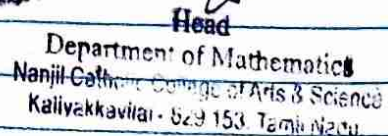 Head
Department of Mathematics
Nanjil Catholic College of Arts & Science
Kaliyakkavilai - 629 153. Tamil Nadu